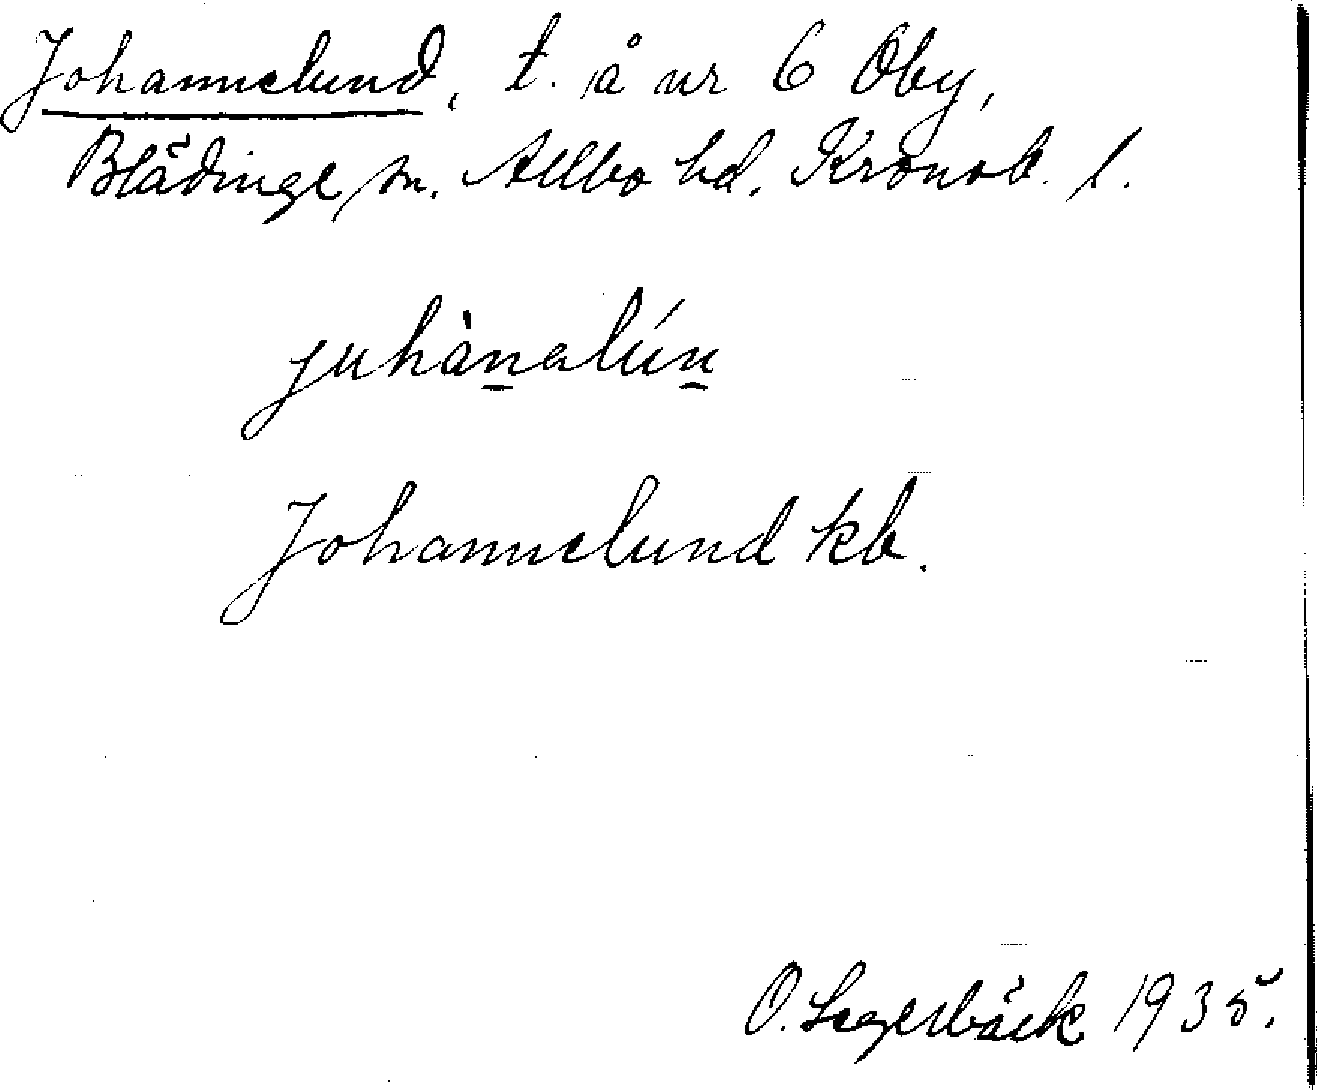 Johannelund, t. å nr 6 Oby,
Blädinge sn. Allbo hd. Kronob. l.
juhànalún
Johannelund kb.
O. Sagerbäck 1935.